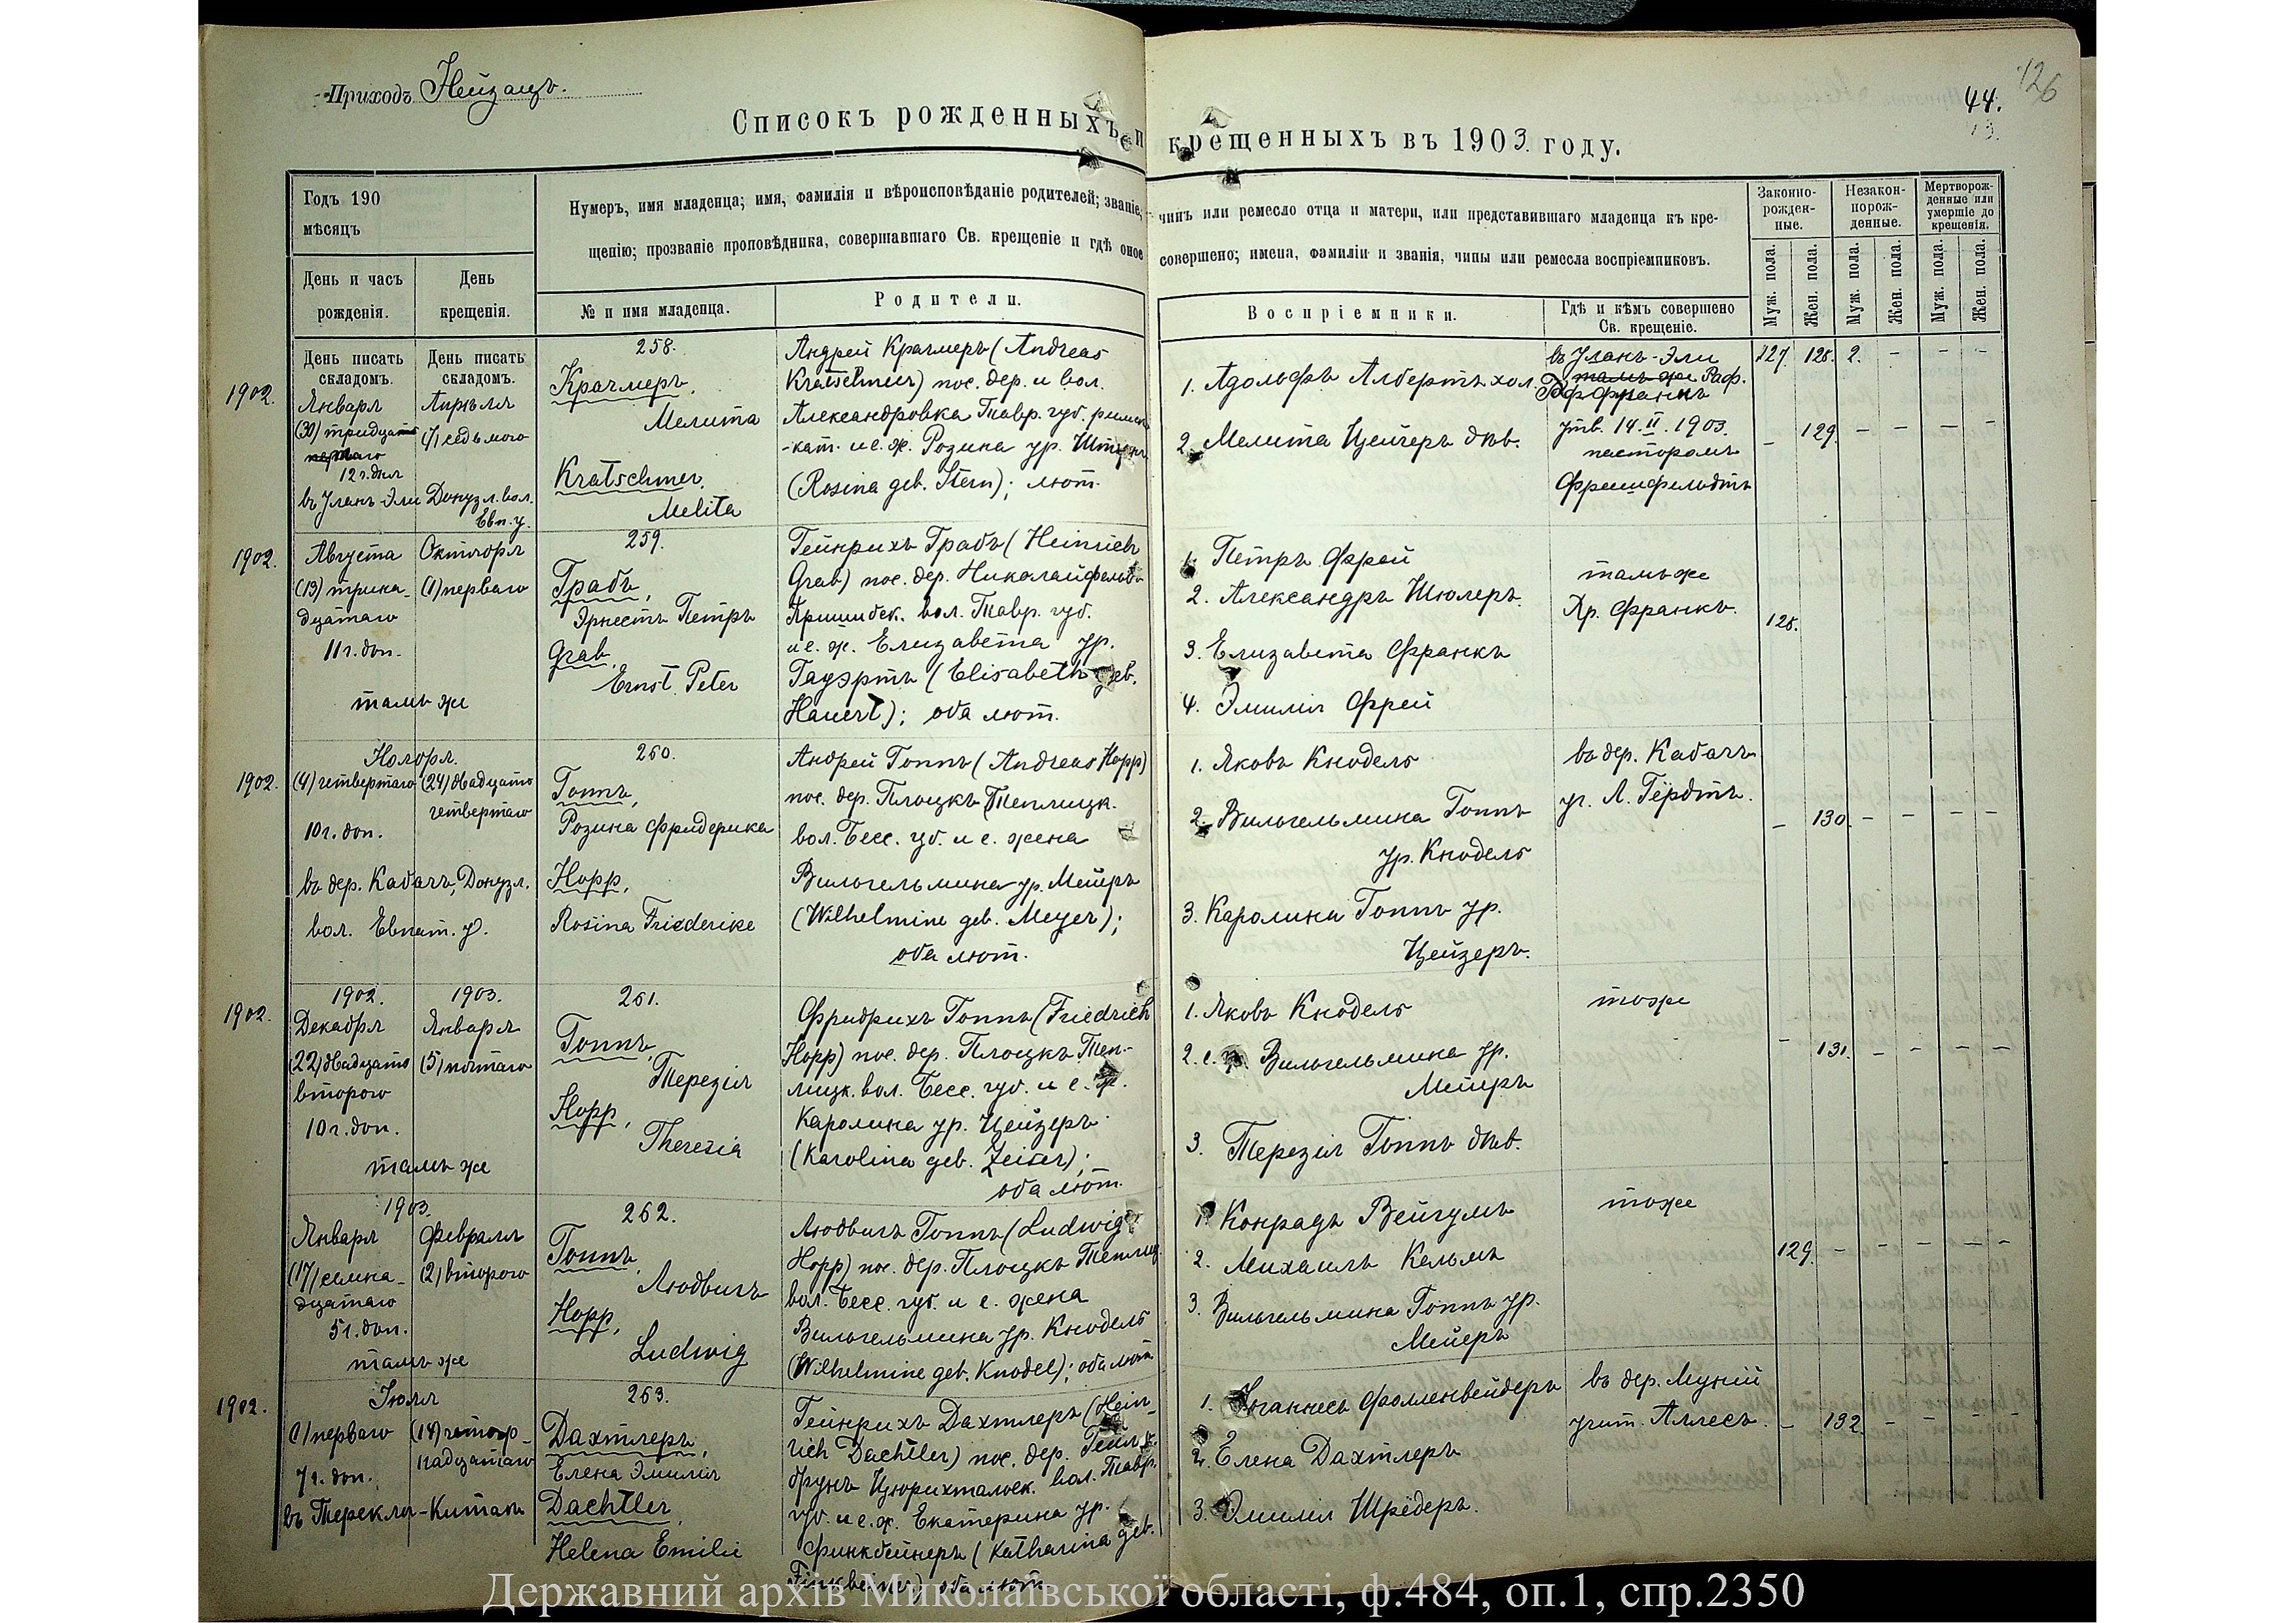 Приходъ Нейзацъ.
126
44.
13.
Списокъ рожденныхъ и крещенныхъ въ 1903 году.
Годъ 190
мѣсяцъ
День и часъ
рожденія.
День
крещенія.
Нумеръ, имя младенца; имя, фамилія и вѣроисповѣданіе родителей; званіе,
чинъ или ремесло отца и матери, или представившаго младенца къ кре-
щенію; прозваніе проповѣдника, совершавшаго Св. крещеніе и гдѣ оное
совершено; имена, фамиліи и званія, чины или ремесла воспріемниковъ.
№ и имя младенца.
Родители.
Воспріемники.
Гдѣ и кѣмъ совершено
Св. крещеніе.
Законно-
рожден-
ные.
Незакон-
норож-
денные.
Мертворож-
денные или
умершіе до
крещенія.
Муж. пола.
Жен. пола.
Муж. пола.
Жен. пола.
Муж. пола.
Жен. пола.
День писать
складомъ.
День писать
складомъ.
1902.
Января
(30) тридцат
12 г. дня
въ Уланъ-Эли
Апрѣля
(7) седьмого
Донузл. вол.
Евп. у.
258.
Крачмеръ,
Мелита
Kratschmer,
Melita
Андрей Крачмеръ (Andreas
Kratschmer) пос. дер. и вол.
Александровка Тавр. губ. римск
-кат. и е. ж. Розина ур. Штернъ
(Rosina geb. Stern); лют.
1. Адольфъ Албертъ хол.
2. Мелита Цейгеръ дѣв.
въ Уланъ-Эли
тамъ же Раф.
Франкъ
утв. 14. II. 1903.
пасторомъ
127. 128. 2. - - -
- 129. - - - -
1902.
Августа
(13) трина-
дцатаго
11 г. доп.
тамъ же
Октября
(1) перваго
259.
Грабъ,
Эрнестъ Петръ
Grab,
Ernst Peter
Гейнрихъ Грабъ (Heinrich
Grab) пос. дер. Николайфельдъ
Пришибск. вол. Тавр. губ.
и е. ж. Елизавета ур.
Гауэртъ (Elisabeth geb.
Hauert); оба лют.
1. Петръ Фрей
2. Александръ Шюлеръ.
3. Елизавета Франкъ
4. Эмилія Фрей
тамъ же
Хр. Франкъ.
128.
1902.
Ноября.
(4) четвертаго
10 г. доп.
въ дер. Кабачъ, Донузл.
вол. Евпат. у.
(24) двадцать
четвертаго
260.
Гоппъ,
Розина Фридерика
Hopp,
Rosina Friederike
Андрей Гоппъ (Andreas Hopp)
пос. дер. Плоцкъ Теплицк.
вол. Бесс. губ. и е. жена
Вильгельмина ур. Мейеръ
(Wilhelmine geb. Meyer);
оба лют.
1. Яковъ Кнодель
2. Вильгельмина Гоппъ
ур. Кнодель
3. Каролина Гоппъ ур.
Цейзеръ.
въ дер. Кабачъ
уч. Л. Гёрдтъ.
- 130. - - - -
1902.
1902.
Декабря
(22) двадцать
второго
10 г. доп.
тамъ же
1903.
Января
(5) пятаго
261.
Гоппъ,
Терезія
Hopp,
Theresia
Фридрихъ Гоппъ (Friedrich
Hopp) пос. дер. Плоцкъ Теп-
лицк. вол. Бесс. губ. и е. ж.
Каролина ур. Цейзеръ
(Karolina geb. Zeiser);
оба лют.
1. Яковъ Кнодель
2. е. ж. Вильгельмина ур.
Мейеръ
3. Терезія Гоппъ дѣв.
тоже
- 131. - - - -
1903.
Января
(17) семна-
дцатаго
5 г. доп.
тамъ же
Февраля
(2) второго
262.
Гоппъ,
Людвигъ
Hopp,
Ludwig
Людвигъ Гоппъ (Ludwig
Hopp) пос. дер. Плоцкъ Теплиц.
вол. Бесс. губ. и е. жена
Вильгельмина ур. Кнодель
(Wilhelmine geb. Knodel); оба лют
1. Конрадъ Вейгумъ
2. Михаилъ Кельмъ
3. Вильгельмина Гоппъ ур.
Мейеръ
тоже
129. - - - - -
1902.
Іюля
(1) перваго
7 г. доп.
въ Терекли-Китанъ
(14) четыр-
надцатаго
263.
Дахтлеръ,
Елена Эмилія
Dachtler,
Helena Emilie
Гейнрихъ Дахтлеръ (Hein-
rich Dachtler) пос. дер. Гейль-
брунъ Цюрихтальск. вол. Тавр.
губ. и е. ж. Екатерина ур.
Финкбейнеръ (Katharina geb.
Finkbeiner) оба лют.
1. Іоганнесъ Фолленвейдеръ
2. Елена Дахтлеръ
3. Эмилія Шрёдеръ.
въ дер. Мунпй
учит. Аллесъ.
- 132. - - - -
Державний архів Миколаївської області, ф.484, оп.1, спр.2350